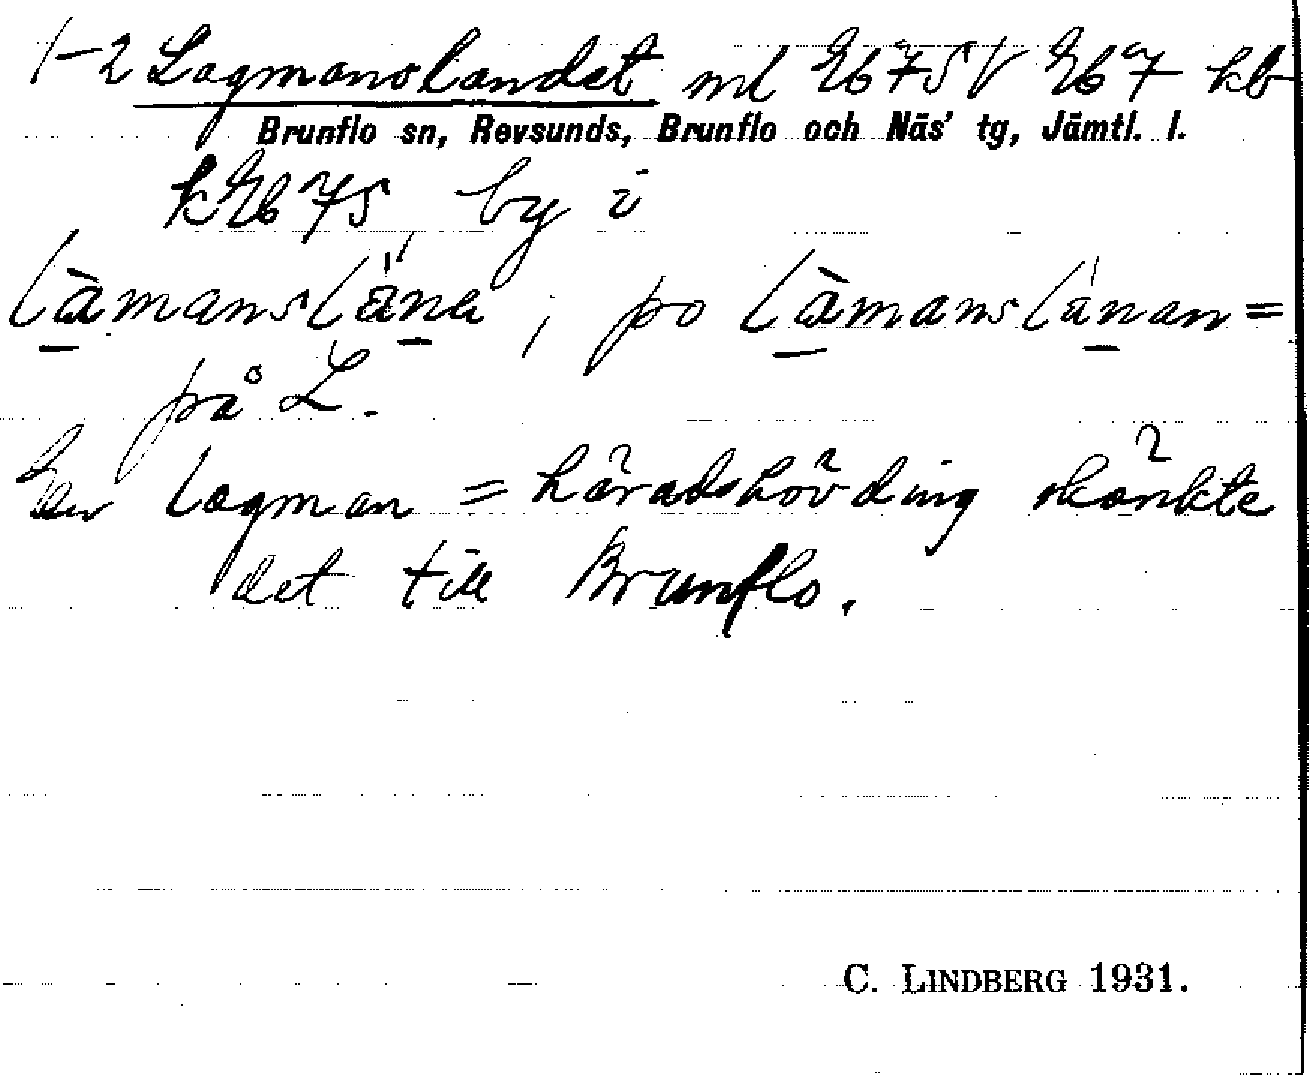 1-2 Lagmanslandet ml Eb 7 S V Eb 7 kb
Brunflo sn, Revsunds, Brunflo och Näs' tg, Jämtl. l.
k Eb 7 S, by i
làmanslána ; po làmanslánan =
på L.
En lagman = häradshövding skänkte
det till Brunflo.
C. LINDBERG 1931.